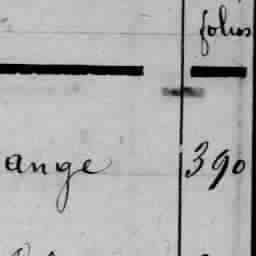 folios
ange 390